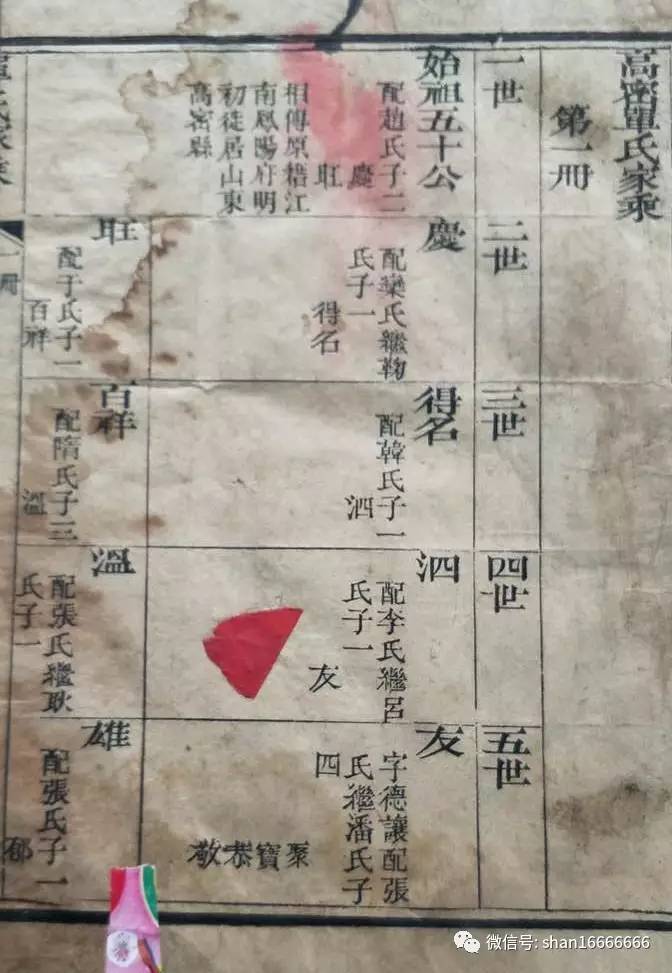 高密單氏家乘
第一冊
一世
始祖五十公
配趙氏子二
慶
旺
相傳原籍江
南鳳陽府明
初徙居山東
高密縣
二世
慶
配欒氏繼鞠
氏子一
得名
旺
配于氏子一
百祥
三世
得名
配韓氏子一
泗
百祥
配隋氏子三
溫
四世
泗
配李氏繼呂
氏子一
友
溫
配張氏繼耿
氏子一
五世
友
字德讓配張
氏繼潘氏子
四
聚寶恭敬
雄
配張氏子一
郁
一冊
微信号: shan16666666